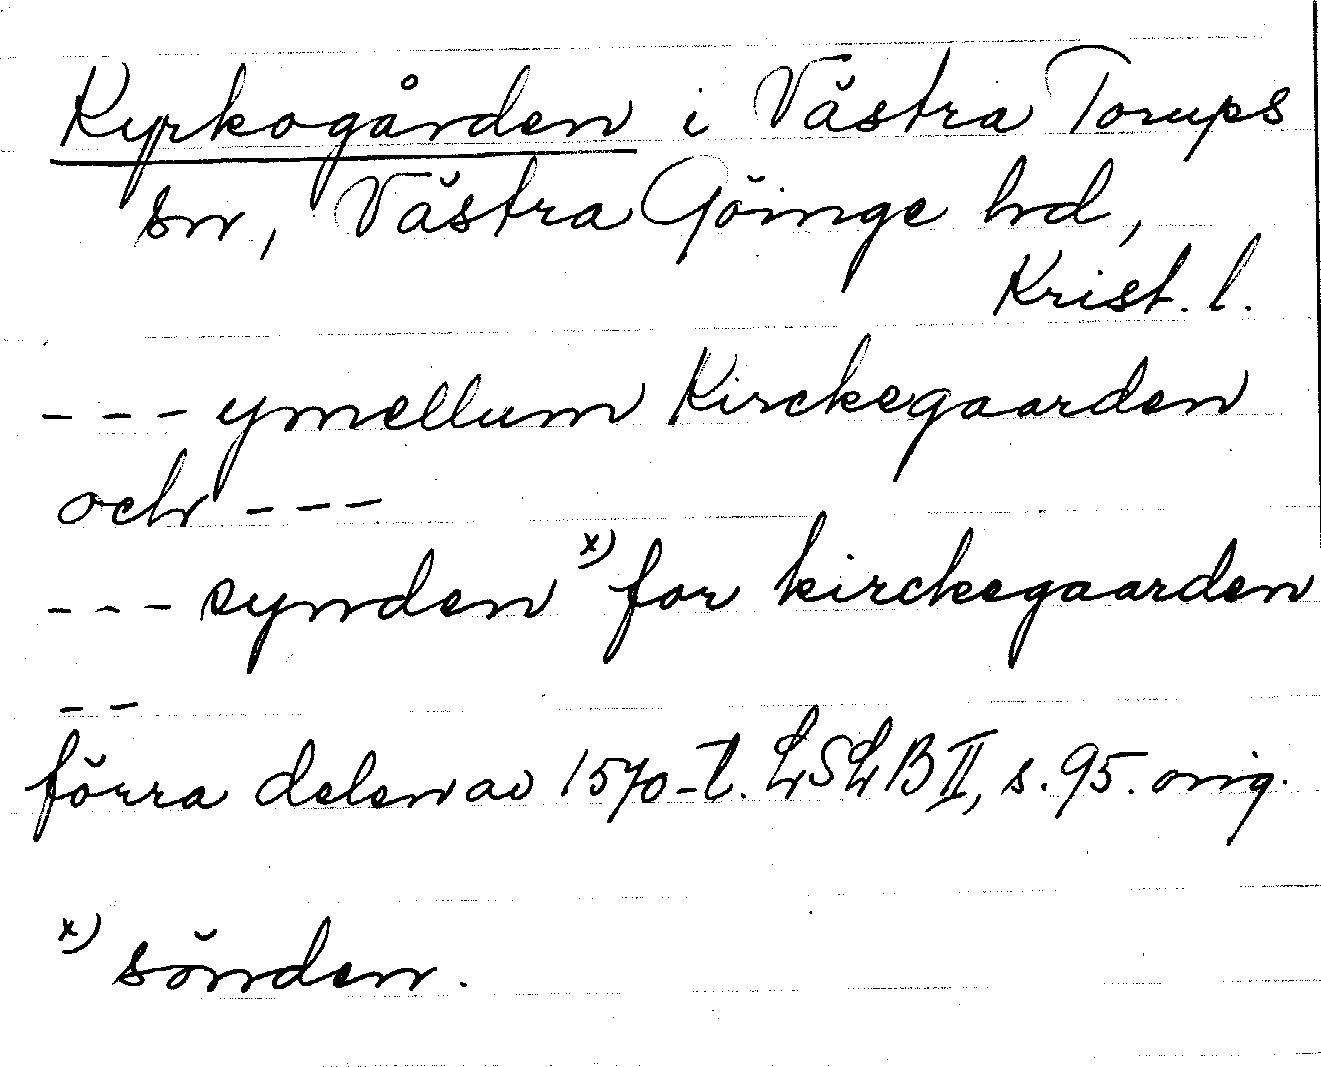 Kyrkogården i Västra Torups
sn, Västra Göinge hd,
Krist. l.
- - - ymellum Kirckegaarden
och - - -
- - - synden x) for kirckegaarden
- -
förra delen av 1570-t. LSLB II, s. 95. orig.
x) sönden.